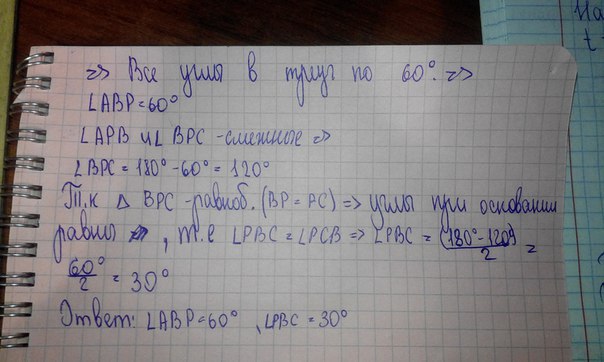 => Все углы в треуг по 60°. =>
∠ABP=60°
∠APB и ∠BPC -смежные =>
∠BPC = 180° - 60° = 120°
Т.к △ BPC -равноб. (BP = PC) => углы при основании
равны, т.е ∠PBC = ∠PCB => ∠PBC = (180° - 120°)/2 =
60°/2 = 30°
Ответ: ∠ABP=60°, ∠PBC = 30°
На
t